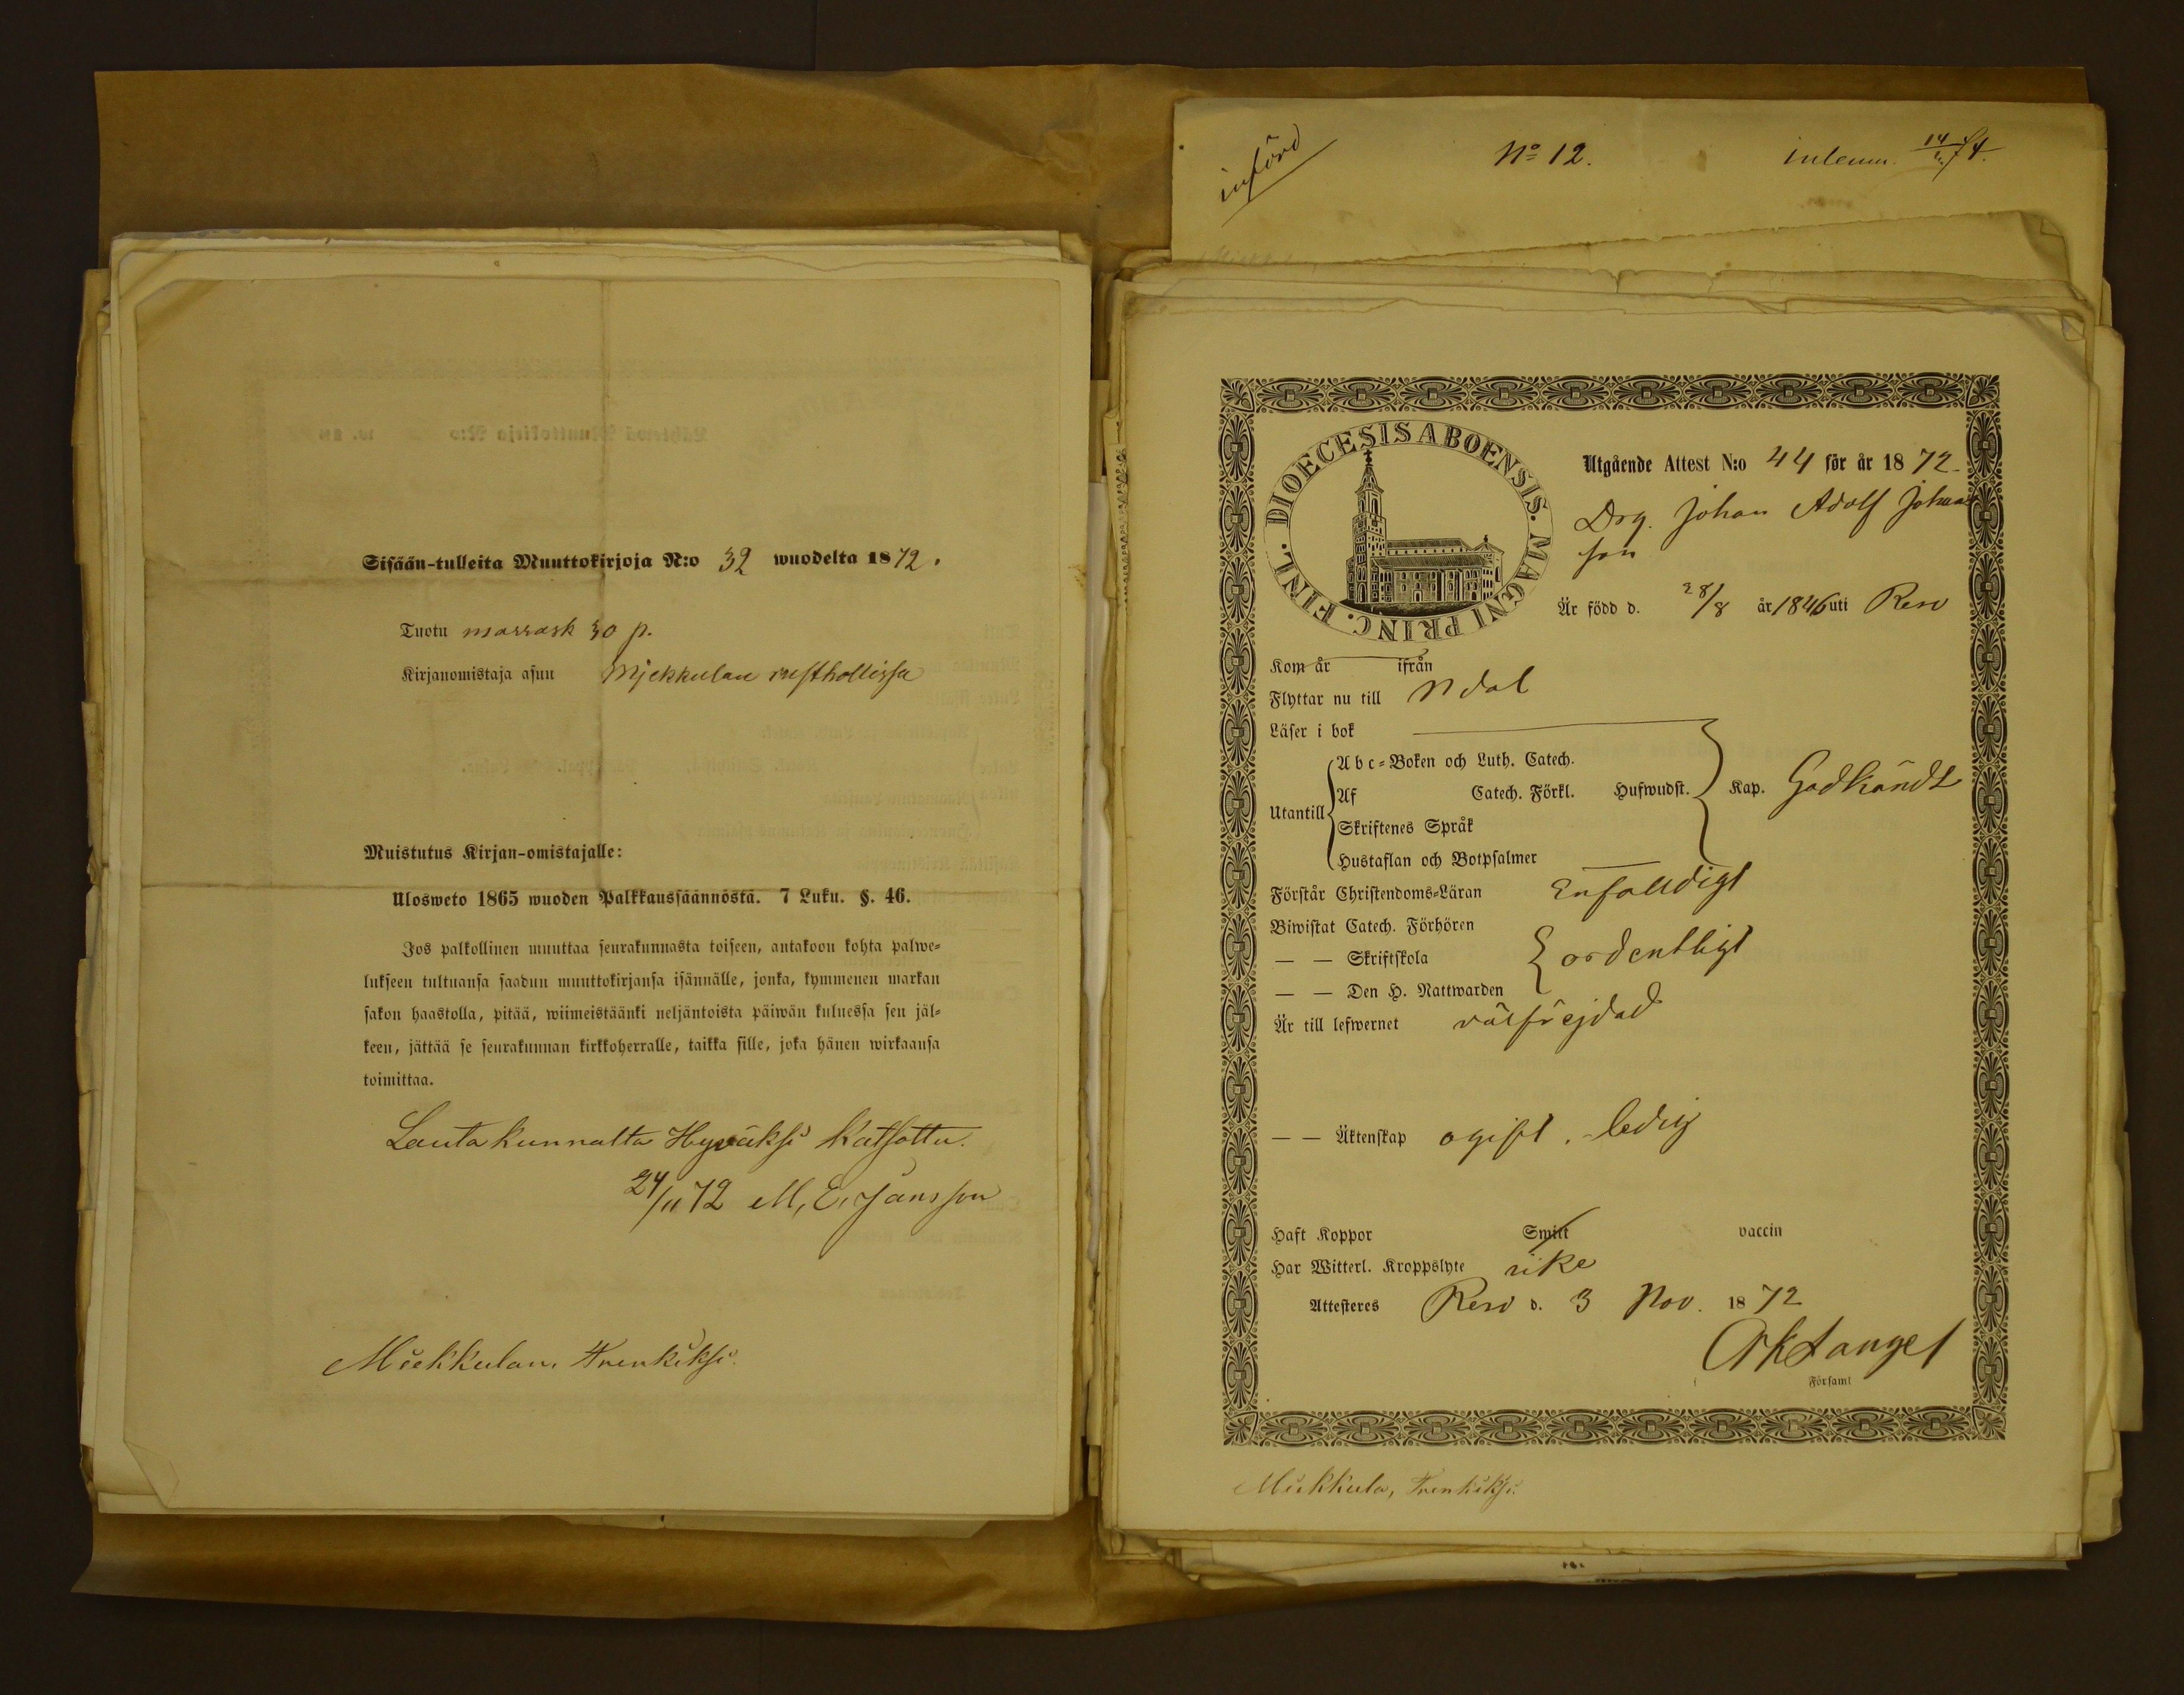 Sisään-tulleita Muuttokirjoja N:o 32 wuodelta 1872.
Tuotu marrask 30 p.
Kirjanomistaja asuu Mjekkulan rusthollissa
Muistutus Kirjan-omistajalle:
Ulosweto 1865 wuoden Palkkaussäännöstä. 7 Luku. §. 46.
Jos palkollinen muuttaa seurakunnasta toiseen, antakoon kohta palwe-
lukseen tultuansa saadun muuttokirjansa isännälle, jonka, kymmenen markan
sakon haastolla, pitää, wiimeistäänki neljäntoista päiwän kuluessa sen jäl-
keen, jättää se seurakunnan kirkkoherralle, taikka sille, joka hänen wirkaansa
toimittaa.
Lautakunnalta Hyväksi katsottu.
24/11 72 M, E, Jansson
Miekkulan, Trenkiksi.
införd
No 12.
inlemn. 74.
DIOECESIS ABOENSIS. MAGNI PRINC. FINL.
Utgående Attest N:o 44 för år 1872
Drg. Johan Adolf Johans
son
Är född d. 28/8 år 1846 uti Reso
Kom år ifrån
Flyttar nu till Ndal
Läser i bok
Utantill
Abc-Boken och Luth. Catech.
Af Catech. Förkl. Hufwudst. Kap. Godkändt
Skriftenes Språk
Hustaflan och Botpsalmer
Förstår Christendoms-Läran Enfalldigt
Biwistat Catech. Förhören
— — Skriftskola ordentligt
— — Den H. Nattwarden
Är till lefwernet välfrejdad
— — Äktenskap ogift. ledig
Haft Koppor Smitt vaccin
Har Witterl. Kroppslyte icke
Attesteres Reso d. 3 Nov. 1872
Församl
Miekkula, Trenkiksi.